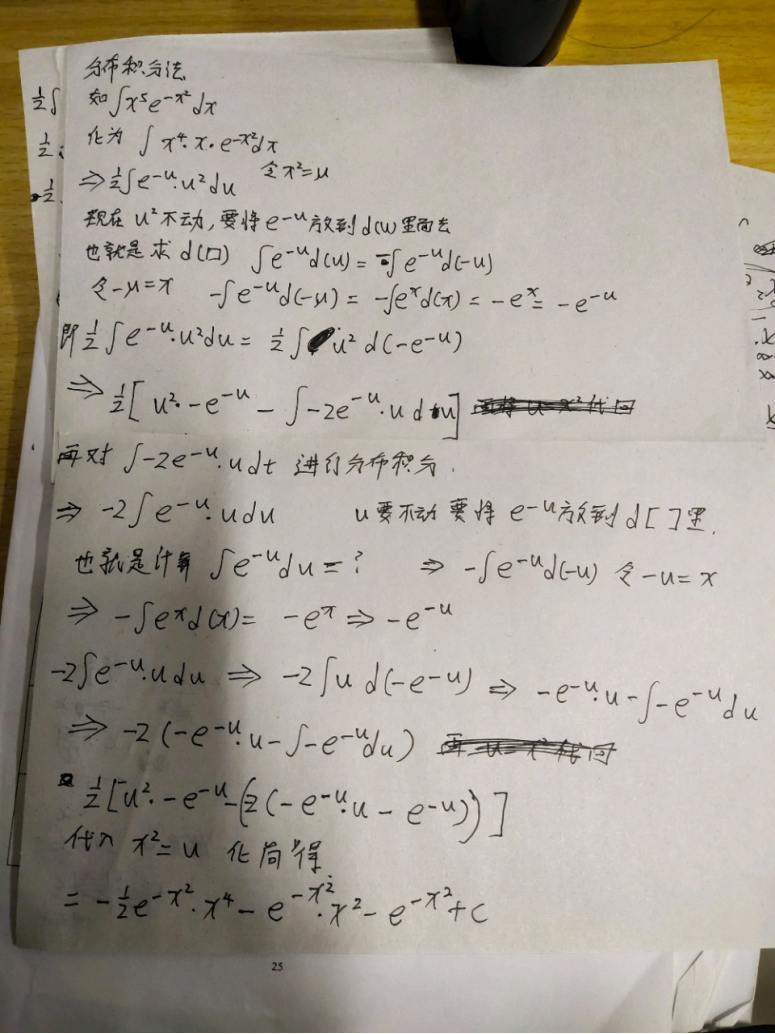 分布积分法
如∫x⁵e^{-x²}dx
化为 ∫x⁴·x·e^{-x²}dx
⇒½∫e^{-u}·u²du 令x²=u
现在u²不动,要将e^{-u}放到d(u)里面去
也就是求d(口) ∫e^{-u}d(u)=-∫e^{-u}d(-u)
令-u=x -∫e^{-u}d(-u)=-∫e^x d(x)=-e^x=-e^{-u}
即½∫e^{-u}·u²du=½∫u²d(-e^{-u})
⇒½[u²·-e^{-u}-∫-2e^{-u}·udu]
再对∫-2e^{-u}·udt进行分布积分.
⇒-2∫e^{-u}·udu u要不动要将e^{-u}放到d[ ]里.
也就是计算∫e^{-u}du=? ⇒-∫e^{-u}d(-u) 令-u=x
⇒-∫e^x d(x)=-e^x⇒-e^{-u}
-2∫e^{-u}·udu⇒-2∫u d(-e^{-u})⇒-e^{-u}·u-∫-e^{-u}du
⇒-2(-e^{-u}·u-∫-e^{-u}du)
½[u²·-e^{-u}-(2(-e^{-u}·u-e^{-u}))]
代入x²=u化简得
=-½e^{-x²}·x⁴-e^{-x²}·x²-e^{-x²}+c
25